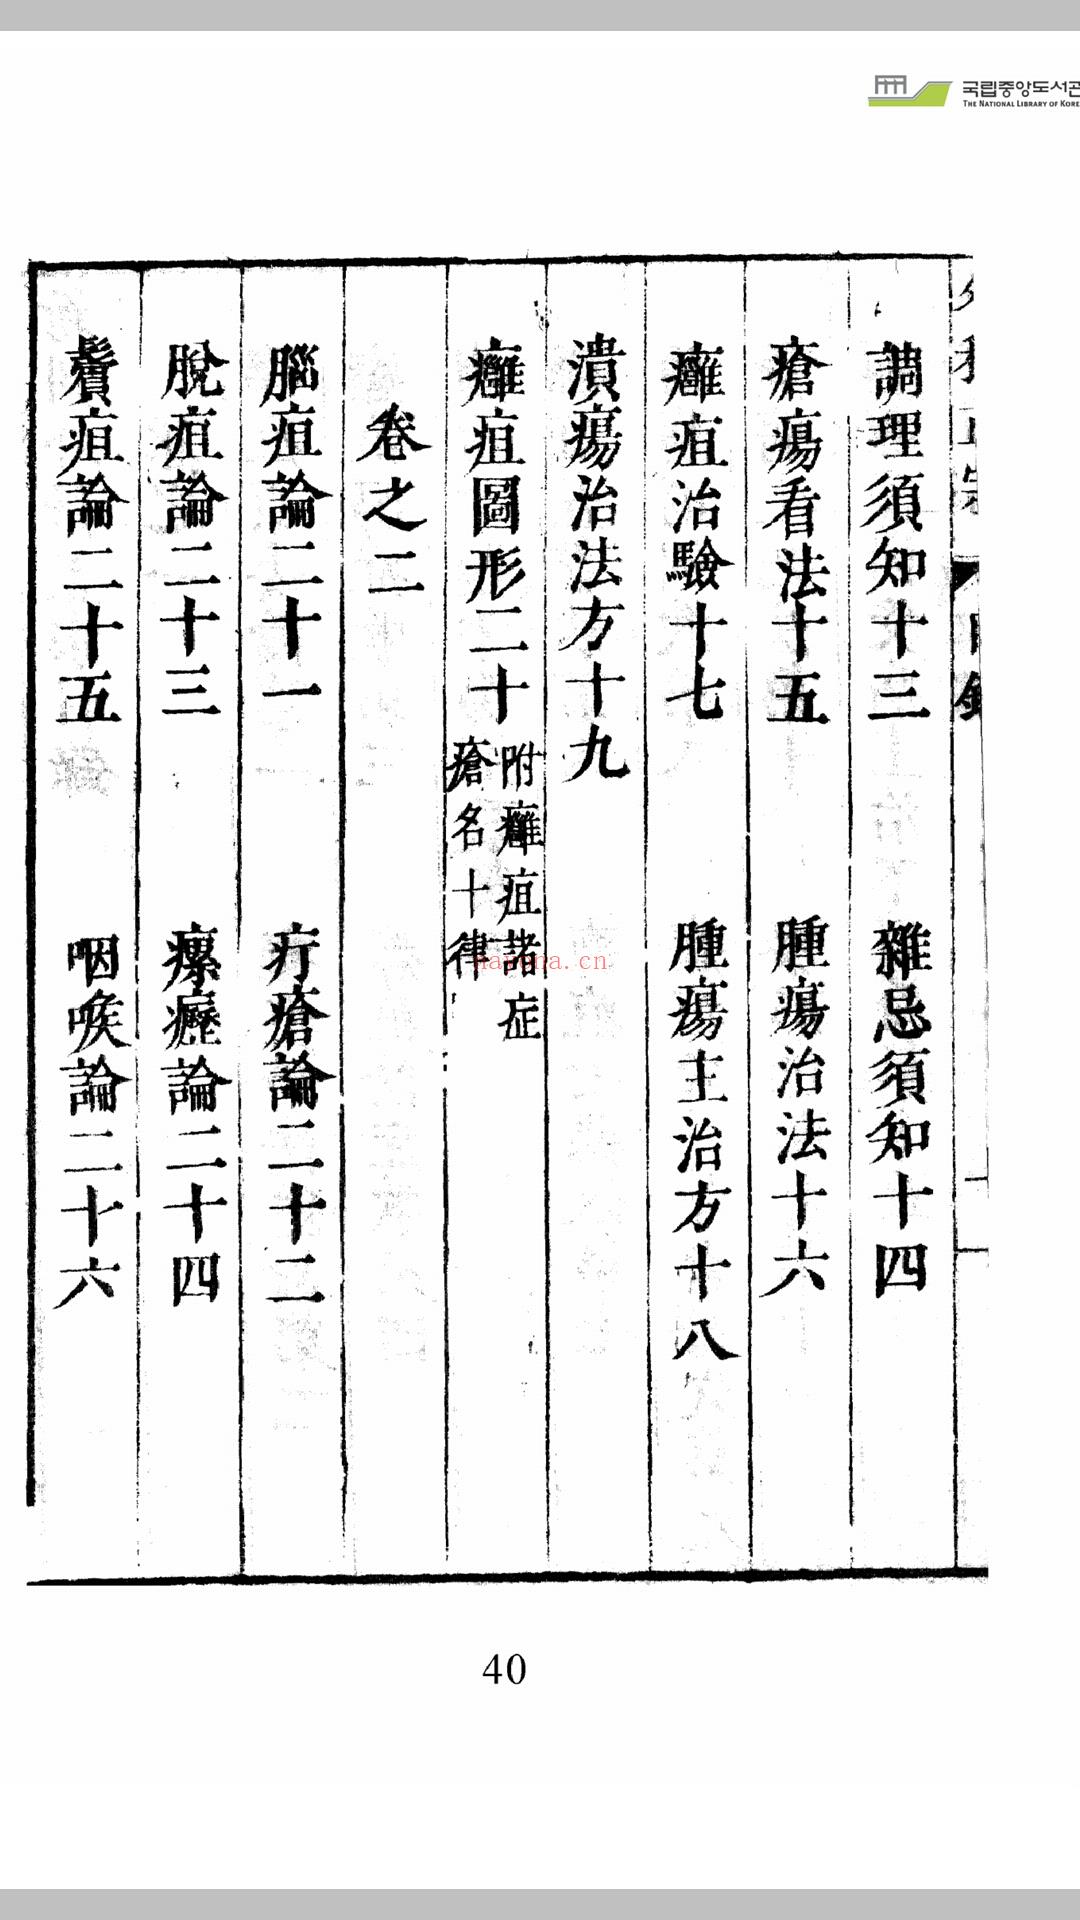 국립중앙도서관
THE NATIONAL LIBRARY OF KORE
調理須知十三 雜忌須知十四
瘡瘍看法十五 腫瘍治法十六
癰疽治驗十七 腫瘍主治方十八
潰瘍治法方十九
癰疽圖形二十 附癰疽諸症瘡名十律
卷之二
腦疽論二十一 疔瘡論二十二
脫疽論二十三 瘰癧論二十四
鬢疽論二十五 咽喉論二十六
nayona.cn
40